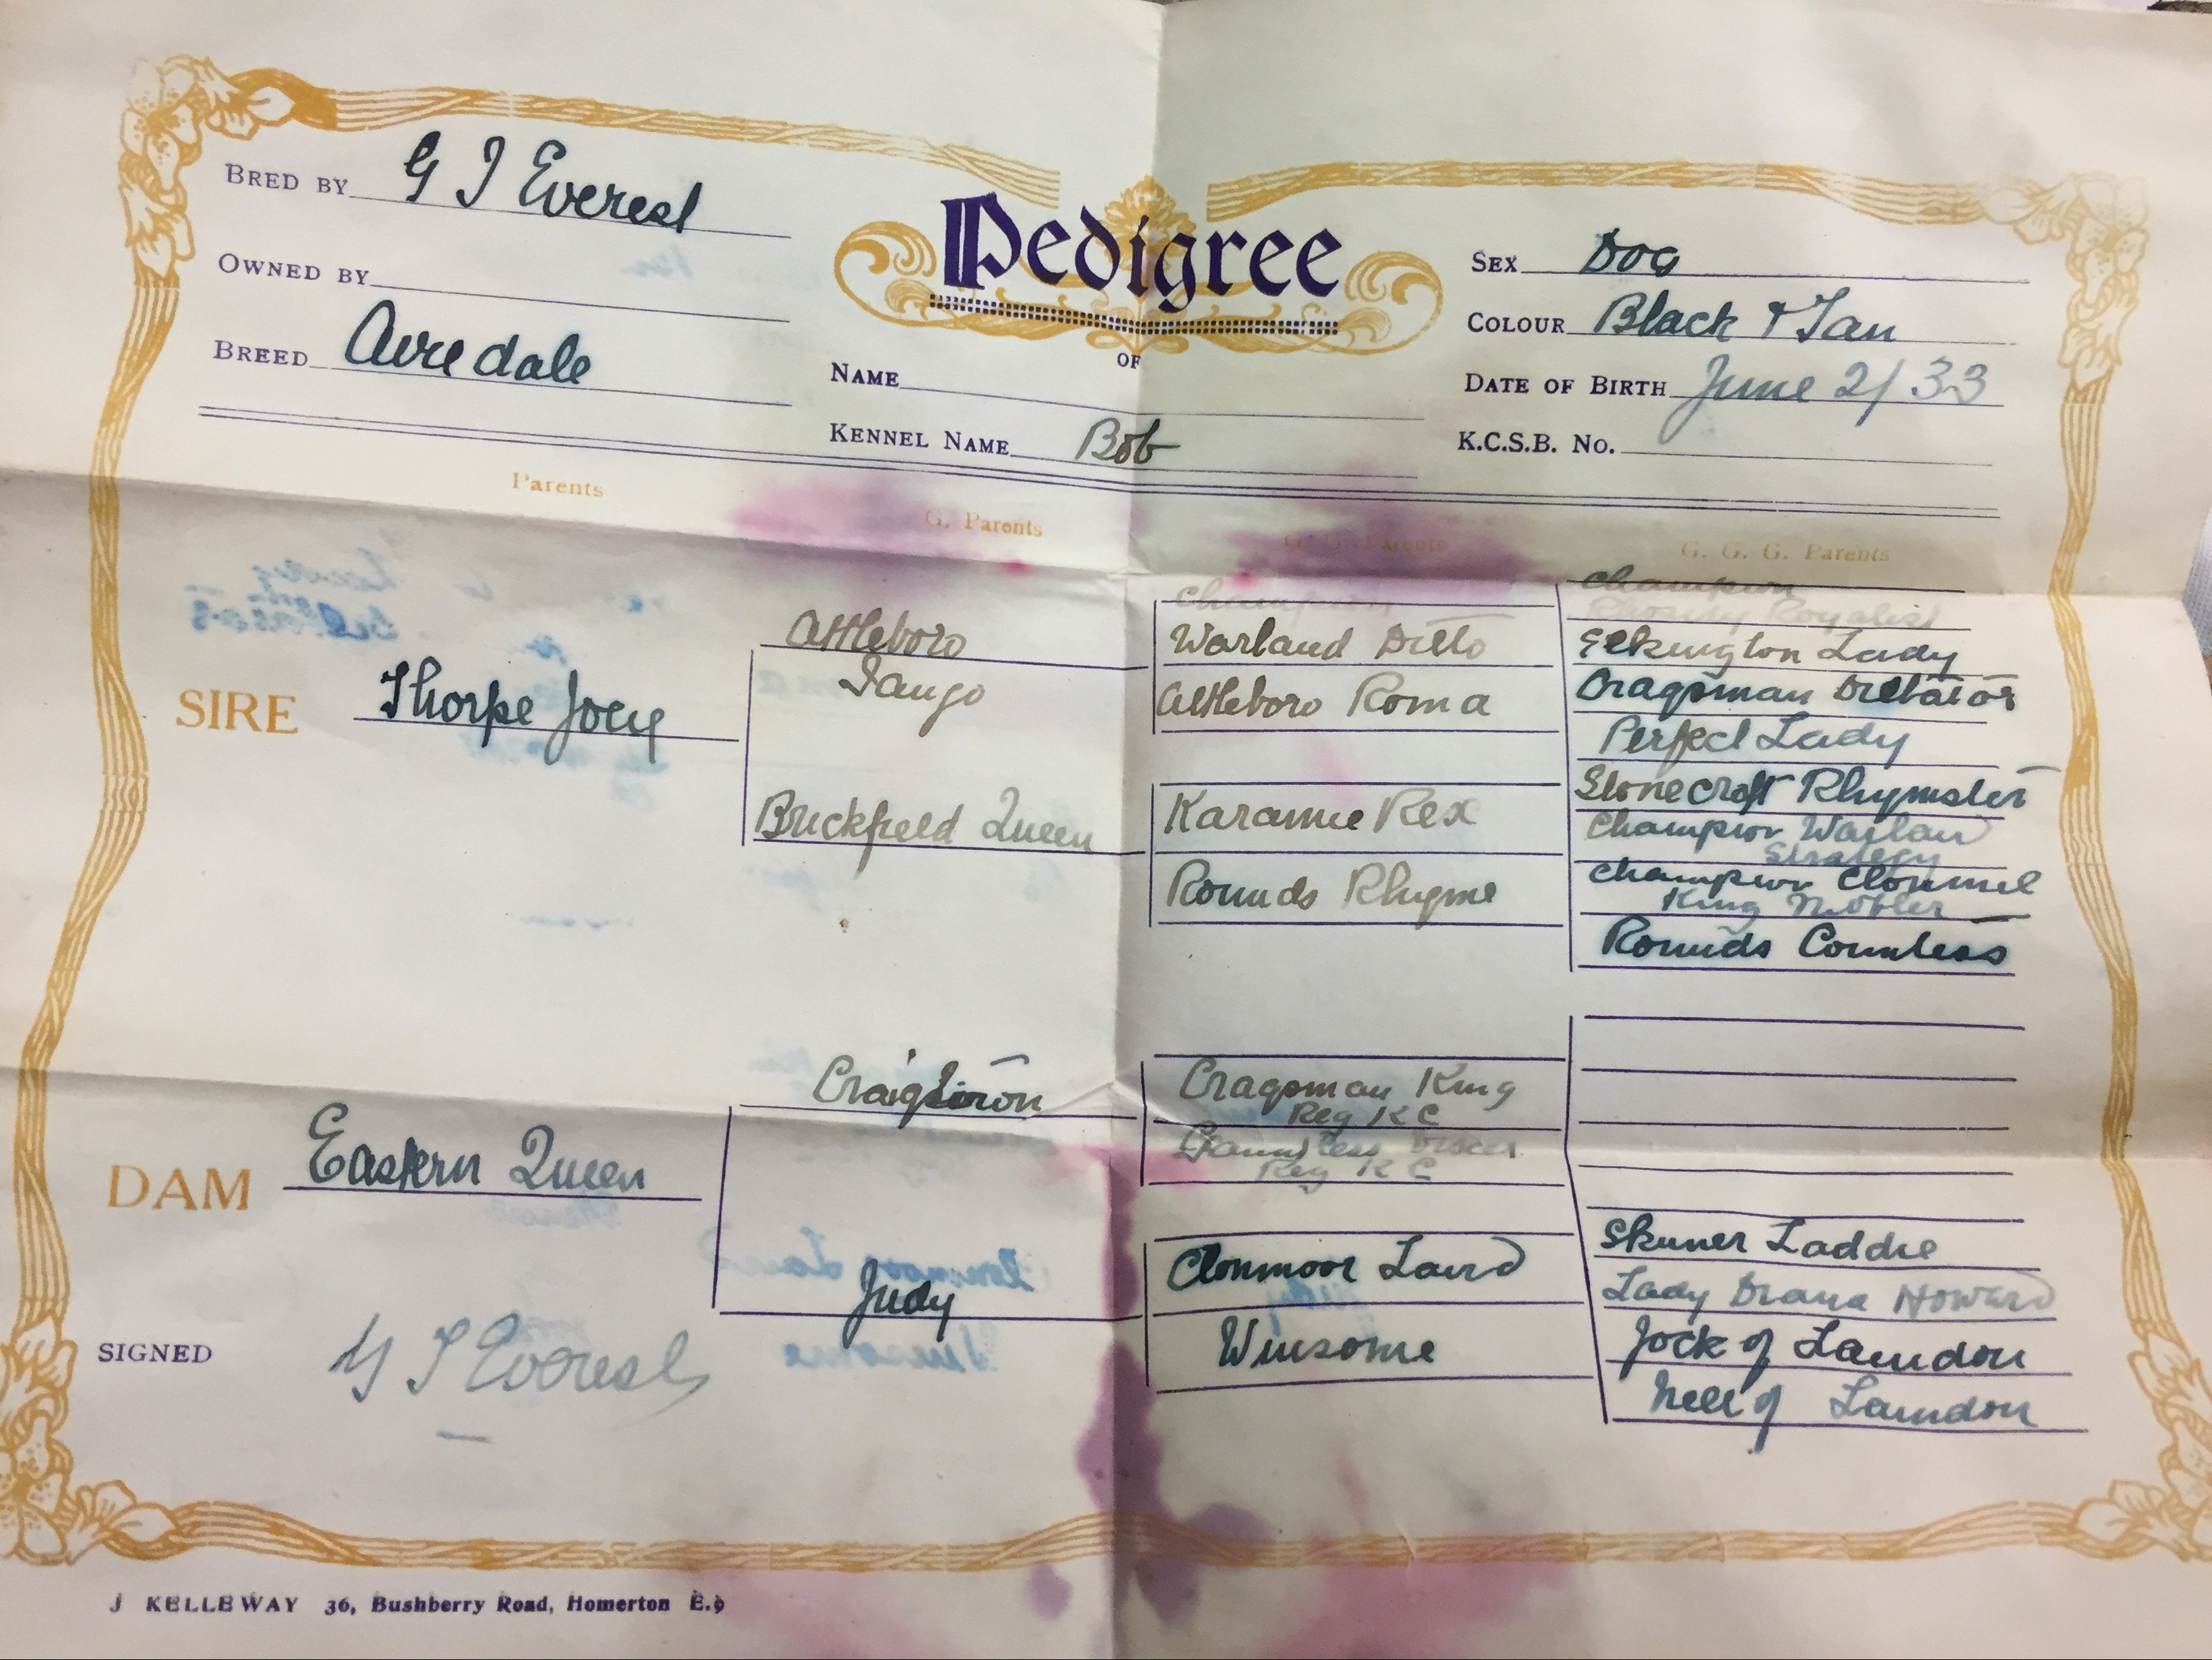 BRED BY G J Everest
OWNED BY
BREED Airedale
Pedigree
OF
NAME
KENNEL NAME Bob
SEX Dog
COLOUR Black & Tan
DATE OF BIRTH June 2/33
K.C.S.B. No.
Parents
G. Parents
G. G. Parents
G. G. G. Parents
SIRE Thorpe Joey
Attleboro
Tango
Brickfield Queen
Champion
Warland Ditto
Attleboro Roma
Karamie Rex
Rounds Rhyme
Champion
Rhosddy Royalist
Elkington Lady
Cragsman Dictator
Perfect Lady
Stonecroft Rhymster
Champion Warland
Strategy
Champion Clonmel
King Nobler
Rounds Countess
DAM Eastern Queen
Judy
Cragsman King
Reg K C
Reg K C
Clonmoor Laird
Winsome
Skuner Laddie
Lady Diana Howard
Jock of Laindon
Nell of Laindon
SIGNED G J Everest
J KELLEWAY 36, Bushberry Road, Homerton E.9